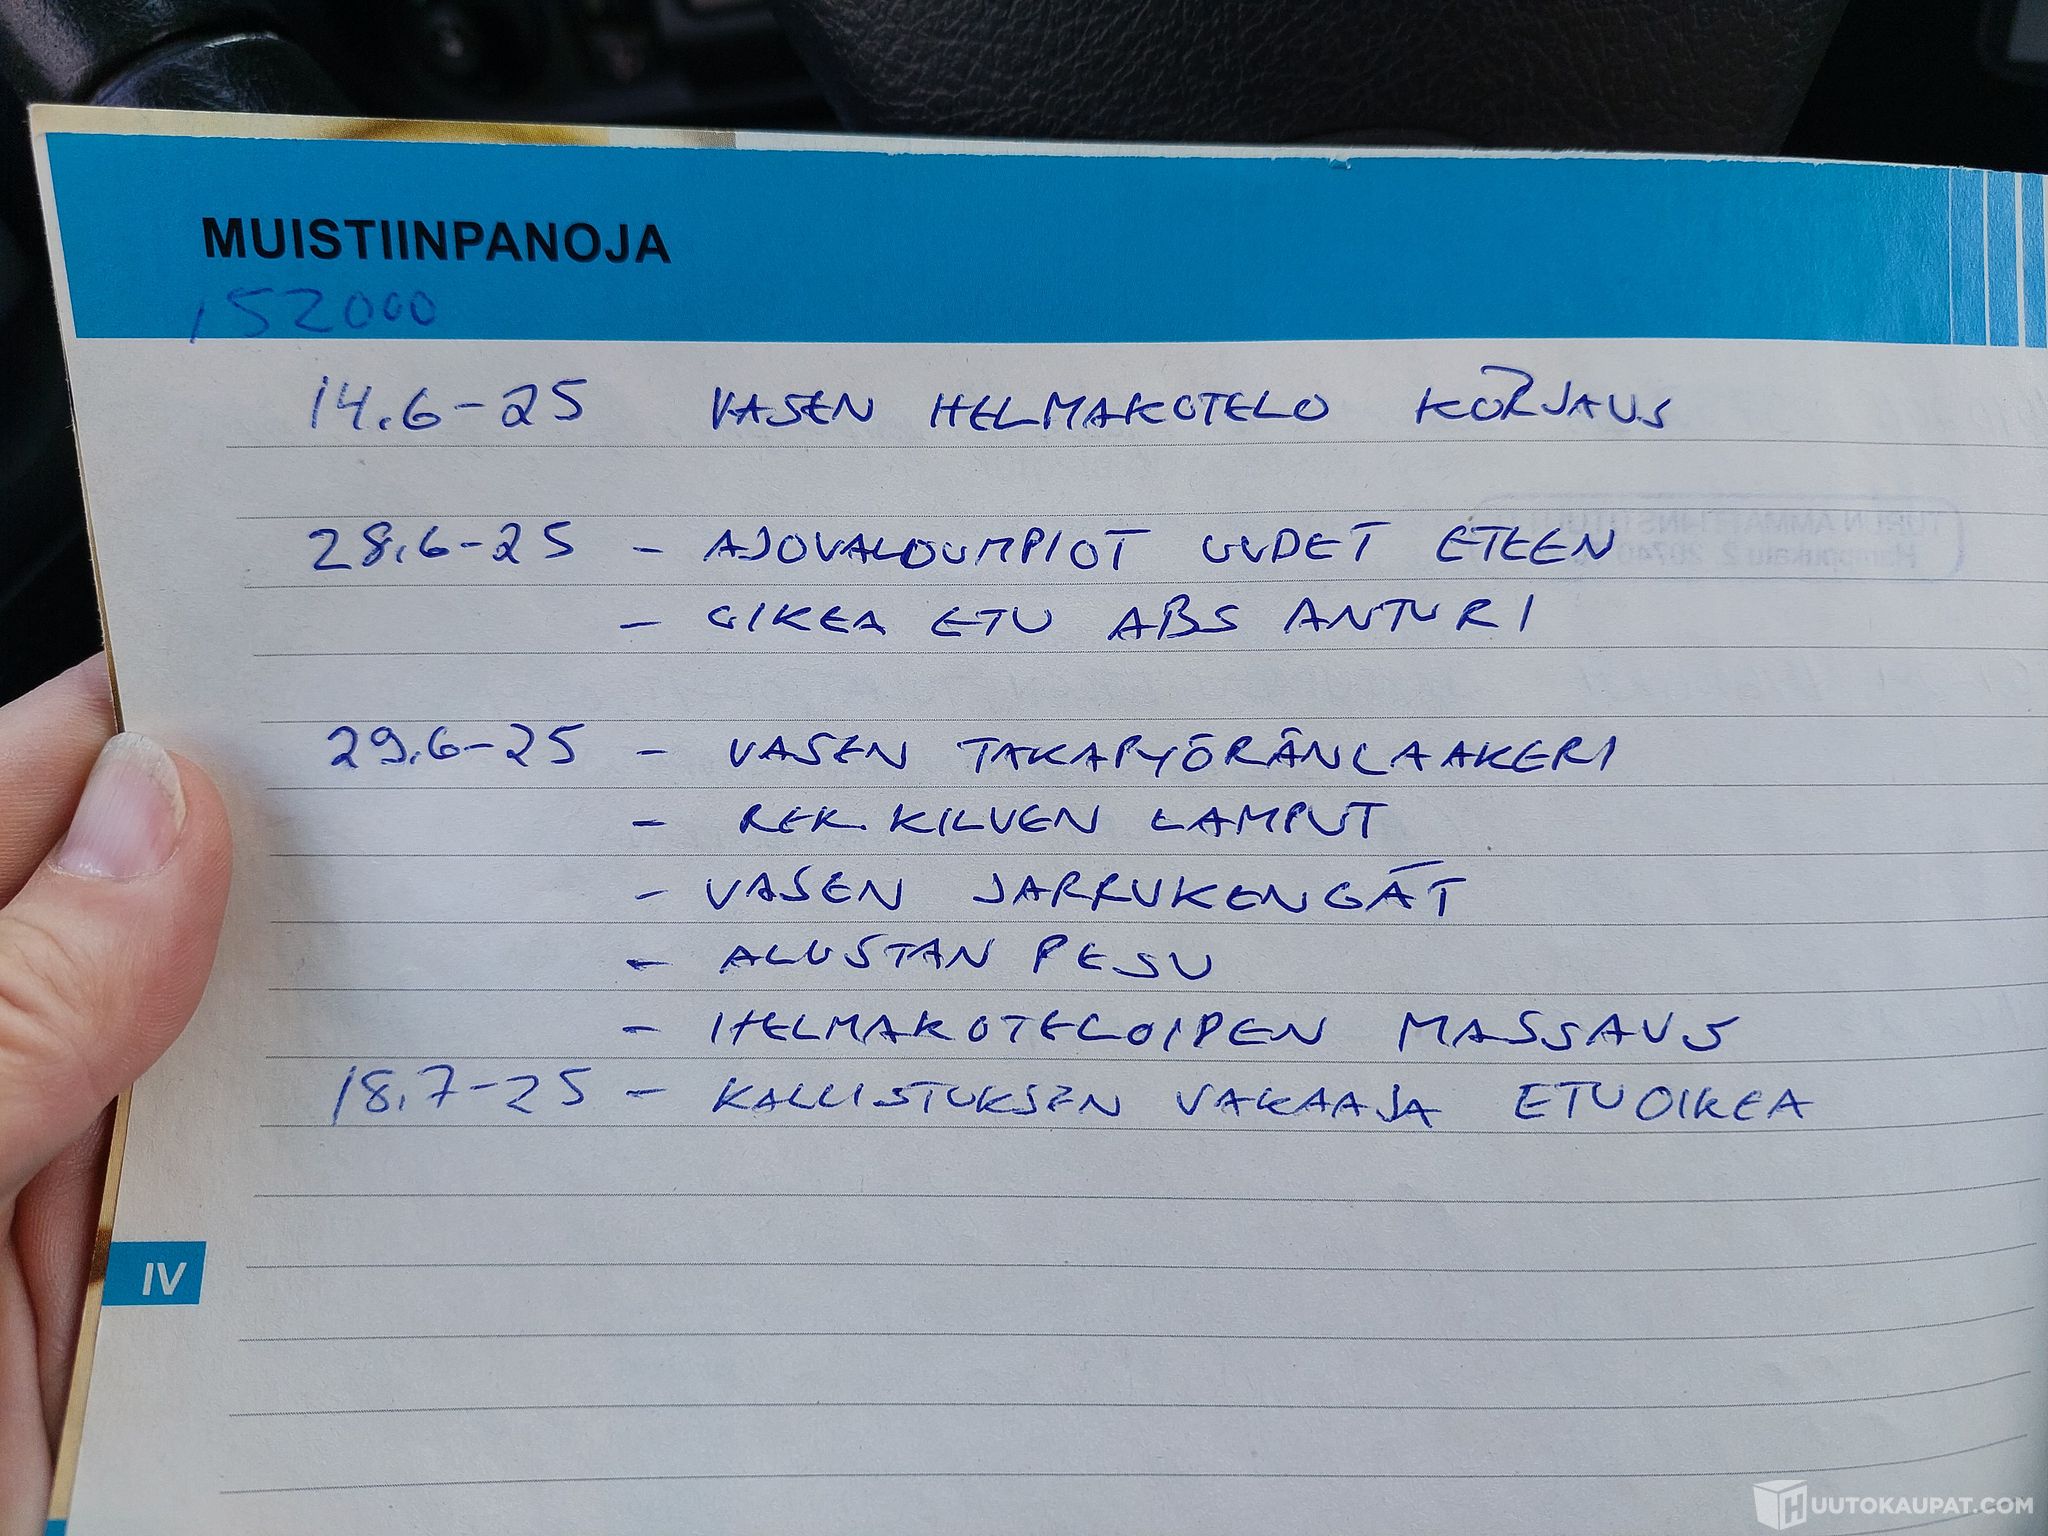 MUISTIINPANOJA
152000
14.6-25 VASEN HELMAKOTELO KORJAUS
28.6-25 - AJOVALOUMPIOT UUDET ETEEN
- OIKEA ETU ABS ANTURI
29.6-25 - VASEN TAKAPYÖRÄNLAAKERI
- REK. KILVEN LAMPUT
- VASEN JARRUKENGÄT
- ALUSTAN PESU
- HELMAKOTELOIDEN MASSAUS
18.7-25 - KALLISTUKSEN VAKAAJA ETUOIKEA
IV
HUUTOKAUPAT.COM